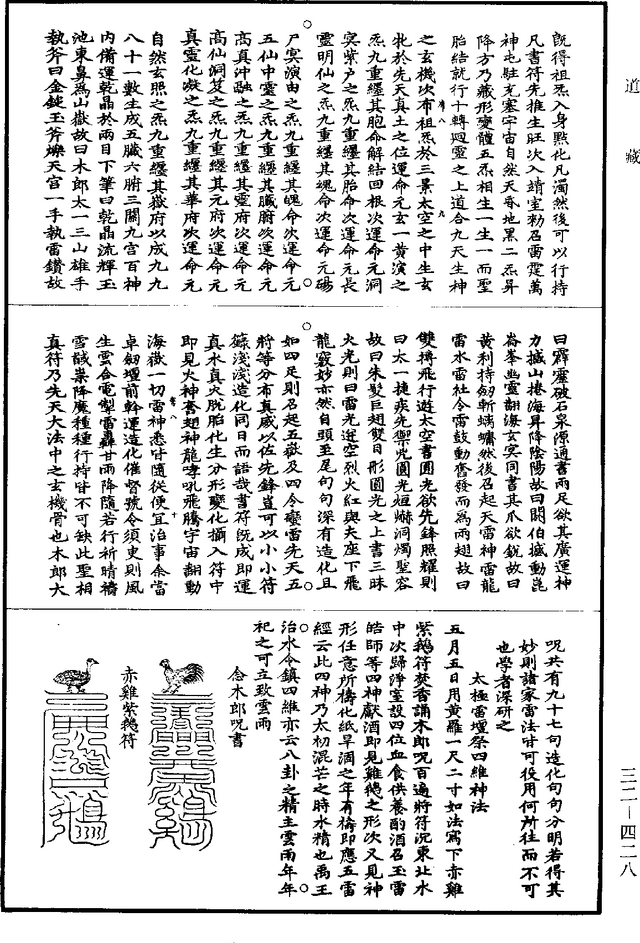 道藏
既得祖炁入身點化凡濁然後可以行持
凡書符先推生旺次入靖室勑召雷霆萬
神屯駐充塞宇宙自然天昏地黑二炁昇
降方乃藏形變體五炁相生一生一而聖
胎結就行十轉迴靈之上道合九天生神
之玄機次布祖炁於三景太空之中生玄
牝於先天真土之位運命元玄一黃演之
炁九重纏其胞命解結回根次運命元洞
冥紫戶之炁九重纏其胎命次運命元長
靈明仙之炁九重纏其魂命次運命元碭
尸冥演由之炁九重纏其魄命次運命元
五仙中靈之炁九重纏其臟腑次運命元
高真沖融之炁九重纏其靈府次運命元
高仙洞笈之炁九重纏其元府次運命元
真靈化凝之炁九重纏其華府次運命元
自然玄照之炁九重纏其嶽府以成九九
八十一數生成五臟六腑三關九宮百神
內備運乾晶於兩目下筆曰乾晶流輝玉
池東鼻為山嶽故曰木郎太一三山雄手
執斧曰金錠玉斧爍天宮一手執雷鑽故
曰霹靂破石泉源通書兩足欲其廣運神
力撼山捲海昇降陰陽故曰閼伯撼動崑
崙峯幽靈翻海玄冥同書其爪欲銳故曰
黃利持劒斬螭驤然後召起天雷神雷龍
雷水雷社令雷鼓動奮發而為兩翅故曰
雙摶飛行遊太空書圓光欲先鋒照耀則
曰太一捷疾先禦光圓光烜赫洞燭聖容
故曰朱髮巨翅雙目彤圓光之上書三昧
火光則曰雷光迸空烈火紅與夫座下飛
龍竅妙亦然自頭至尾句句深有造化且
如四足則召起五嶽及四令蠻雷先天五
將等分布真威以佐先鋒豈可以小小符
籙淺淺造化同日而語哉書符既成即運
真水真火脫胎化生分形變化攝入符中
即見火神奮翅神龍哮吼飛騰宇宙翻動
海嶽一切雷神悉皆隨從便宜治事余當
卓劒壇前幹運造化催督號令須臾則風
生雲合電掣雷轟甘雨降隨若行祈晴禱
雪馘祟降魔種種行持皆不可缺此聖相
真符乃先天大法中之玄機骨也木郎大
呪共有九十七句造化句句分明若得其
妙則諸家雷法皆可役用何所往而不可
也學者深研之
太極雷壇祭四維神法
五月五日用黃羅一尺二寸如法寫下赤雞
紫鵝符焚香誦木郎呪百遍將符沉東北水
中次歸淨室設四位血食供養酌酒召玉雷
皓師等四神獻酒即見雞鵝之形次又見神
形任意所禱化紙旱涸之年有禱即應五雷
經云此四神乃太初混茫之時水精也禹王
治水令鎮四維亦云八卦之精主雲雨年年
祀之可立致雲雨
念木郎呪書
赤雞紫鵝符
三二—四二八